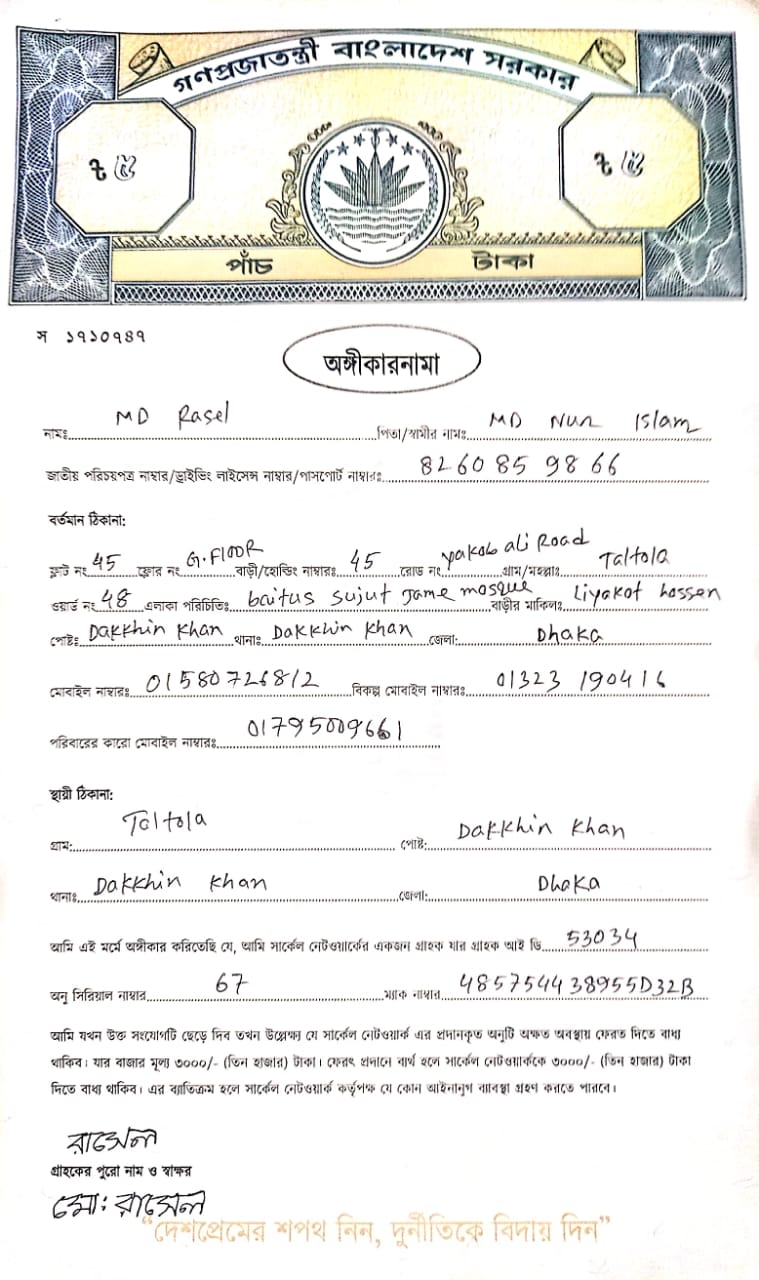 গণপ্রজাতন্ত্রী বাংলাদেশ সরকার
৳ ৫ ৳ ৫
পাঁচ টাকা
স ১৭১০৭৪৭
অঙ্গীকারনামা
নামঃ MD Rasel পিতা/স্বামীর নামঃ MD Nur Islam
জাতীয় পরিচয়পত্র নাম্বার/ড্রাইভিং লাইসেন্স নাম্বার/পাসপোর্ট নাম্বারঃ 8260859866
বর্তমান ঠিকানা:
ফ্লাট নং 45 ফ্লোর নং G.FlOOR বাড়ী/হোল্ডিং নাম্বারঃ 45 রোড নং yakob ali Road গ্রাম/মহল্লাঃ Taltola
ওয়ার্ড নং 48 এলাকা পরিচিতিঃ baitus sujut Jame mosque বাড়ীর মাকিলঃ Liyakot hossen
পোষ্টঃ Dakkhin khan থানাঃ Dakkhin khan জেলা: Dhaka
মোবাইল নাম্বারঃ 01580726812 বিকল্প মোবাইল নাম্বারঃ 01323 190416
পরিবারের কারো মোবাইল নাম্বারঃ 01795009661
স্থায়ী ঠিকানা:
গ্রাম: Taltola পোষ্ট: Dakkhin khan
থানাঃ Dakkhin khan জেলা: Dhaka
আমি এই মর্মে অঙ্গীকার করিতেছি যে, আমি সার্কেল নেটওয়ার্কের একজন গ্রাহক যার গ্রাহক আই ডি 53034
অনু সিরিয়াল নাম্বার 67 ম্যাক নাম্বার 485754438955D32B
আমি যখন উক্ত সংযোগটি ছেড়ে দিব তখন উল্লেক্ষ্য যে সার্কেল নেটওয়ার্ক এর প্রদানকৃত অনুটি অক্ষত অবস্থায় ফেরত দিতে বাধ্য
থাকিব। যার বাজার মূল্য ৩০০০/- (তিন হাজার) টাকা। ফেরৎ প্রদানে ব্যর্থ হলে সার্কেল নেটওয়ার্ককে ৩০০০/- (তিন হাজার) টাকা
দিতে বাধ্য থাকিব। এর ব্যতিক্রম হলে সার্কেল নেটওয়ার্ক কর্তৃপক্ষ যে কোন আইনানুগ ব্যাবস্থা গ্রহণ করতে পারবে।
রাসেল
গ্রাহকের পুরো নাম ও স্বাক্ষর
মো: রাসেল
“দেশপ্রেমের শপথ নিন, দুর্নীতিকে বিদায় দিন”